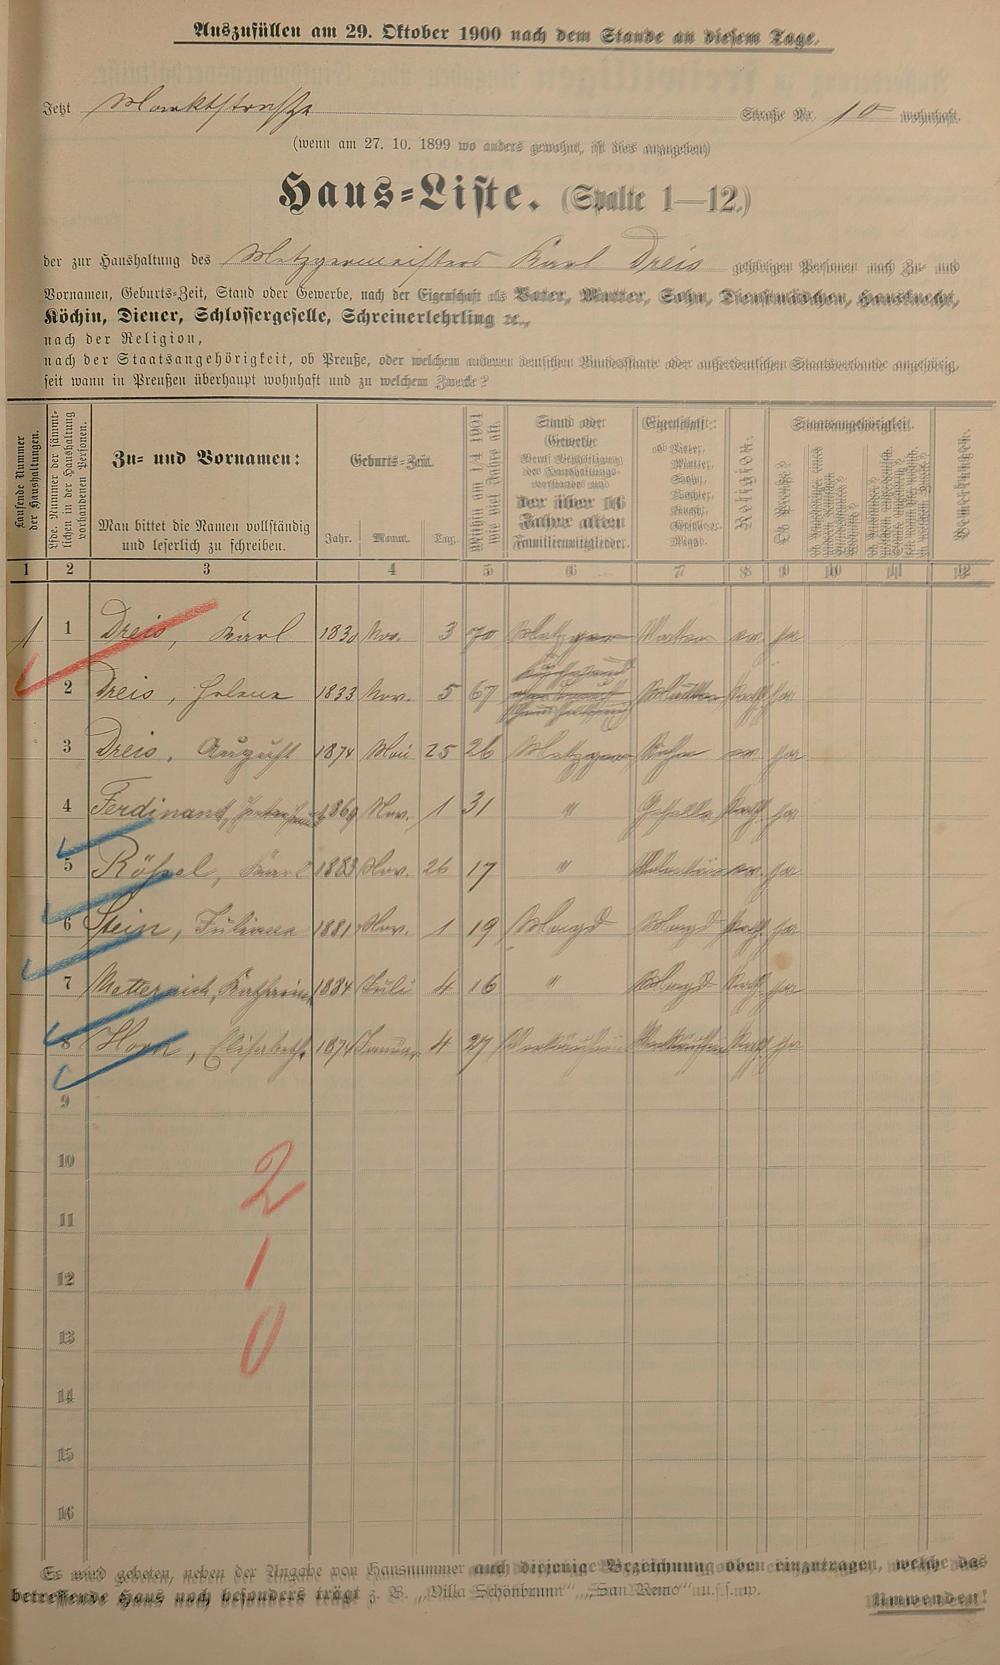 Auszufüllen am 29. Oktober 1900 nach dem Stande an diesem Tage.
Jetzt Marktstraße Straße Nr. 10 wohnhaft.
(wenn am 27. 10. 1899 wo anders gewohnt, ist dies anzugeben)
Haus-Liste. (Spalte 1—12.)
der zur Haushaltung des Metzgermeisters Karl Dreis gehörigen Personen nach Zu- und
Vornamen, Geburts-Zeit, Stand oder Gewerbe, nach der Eigenschaft als Vater, Mutter, Sohn, Dienstmädchen, Hausknecht,
Köchin, Diener, Schlossergeselle, Schreinerlehrling ꝛc.,
nach der Religion,
nach der Staatsangehörigkeit, ob Preuße, oder welchem anderen deutschen Bundesstaate oder außerdeutschen Staatsverbande angehörig,
seit wann in Preußen überhaupt wohnhaft und zu welchem Zwecke?
Laufende Nummer der Haushaltungen.
Lfde. Nummer der sämmtlichen in der Haushaltung vorhandenen Personen.
Zu- und Vornamen:
Man bittet die Namen vollständig
und leserlich zu schreiben.
Geburts-Zeit.
Jahr. Monat. Tag.
Mithin am 1/4 1901 wie viel Jahre alt.
Stand oder
Gewerbe
der über 16
Jahre alten
Familienmitglieder.
Eigenschaft:
ob Vater,
Mutter,
Sohn,
Tochter,
Magd.
Religion.
Ob Preuße?
Staatsangehörigkeit.
Bemerkungen.
1 2 3 4 5 6 7 8 9 10 11 12
1 1 Dreis, Karl 1830 Nov. 3 70 Metzger Vater ev. ja
2 Dreis, Helena 1833 Nov. 5 67 Mutter kath. ja
3 Dreis, August 1874 Mai 25 26 Metzger Sohn ev. ja
4 Ferdinand, 1869 Nov. 1 31 " Geselle kath. ja
5 Rößel, Karl 1883 Nov. 26 17 " ev. ja
6 Stein, Juliana 1881 Nov. 1 19 Magd Magd kath. ja
7 Metternich, Katharina 1884 Juli 4 16 " Magd kath. ja
8 Horn, Elisabeth 1874 Januar 4 27 Verkäuferin Verkäuferin kath. ja
9
10
11
12
13
14
15
16
2
1
0
Es wird gebeten, neben der Angabe von Hausnummer auch diejenige Bezeichnung oben einzutragen, welche das
betreffende Haus noch besonders trägt z. B. „Villa Schönbrunn" „San Remo" u. s. s. w. Umwenden!